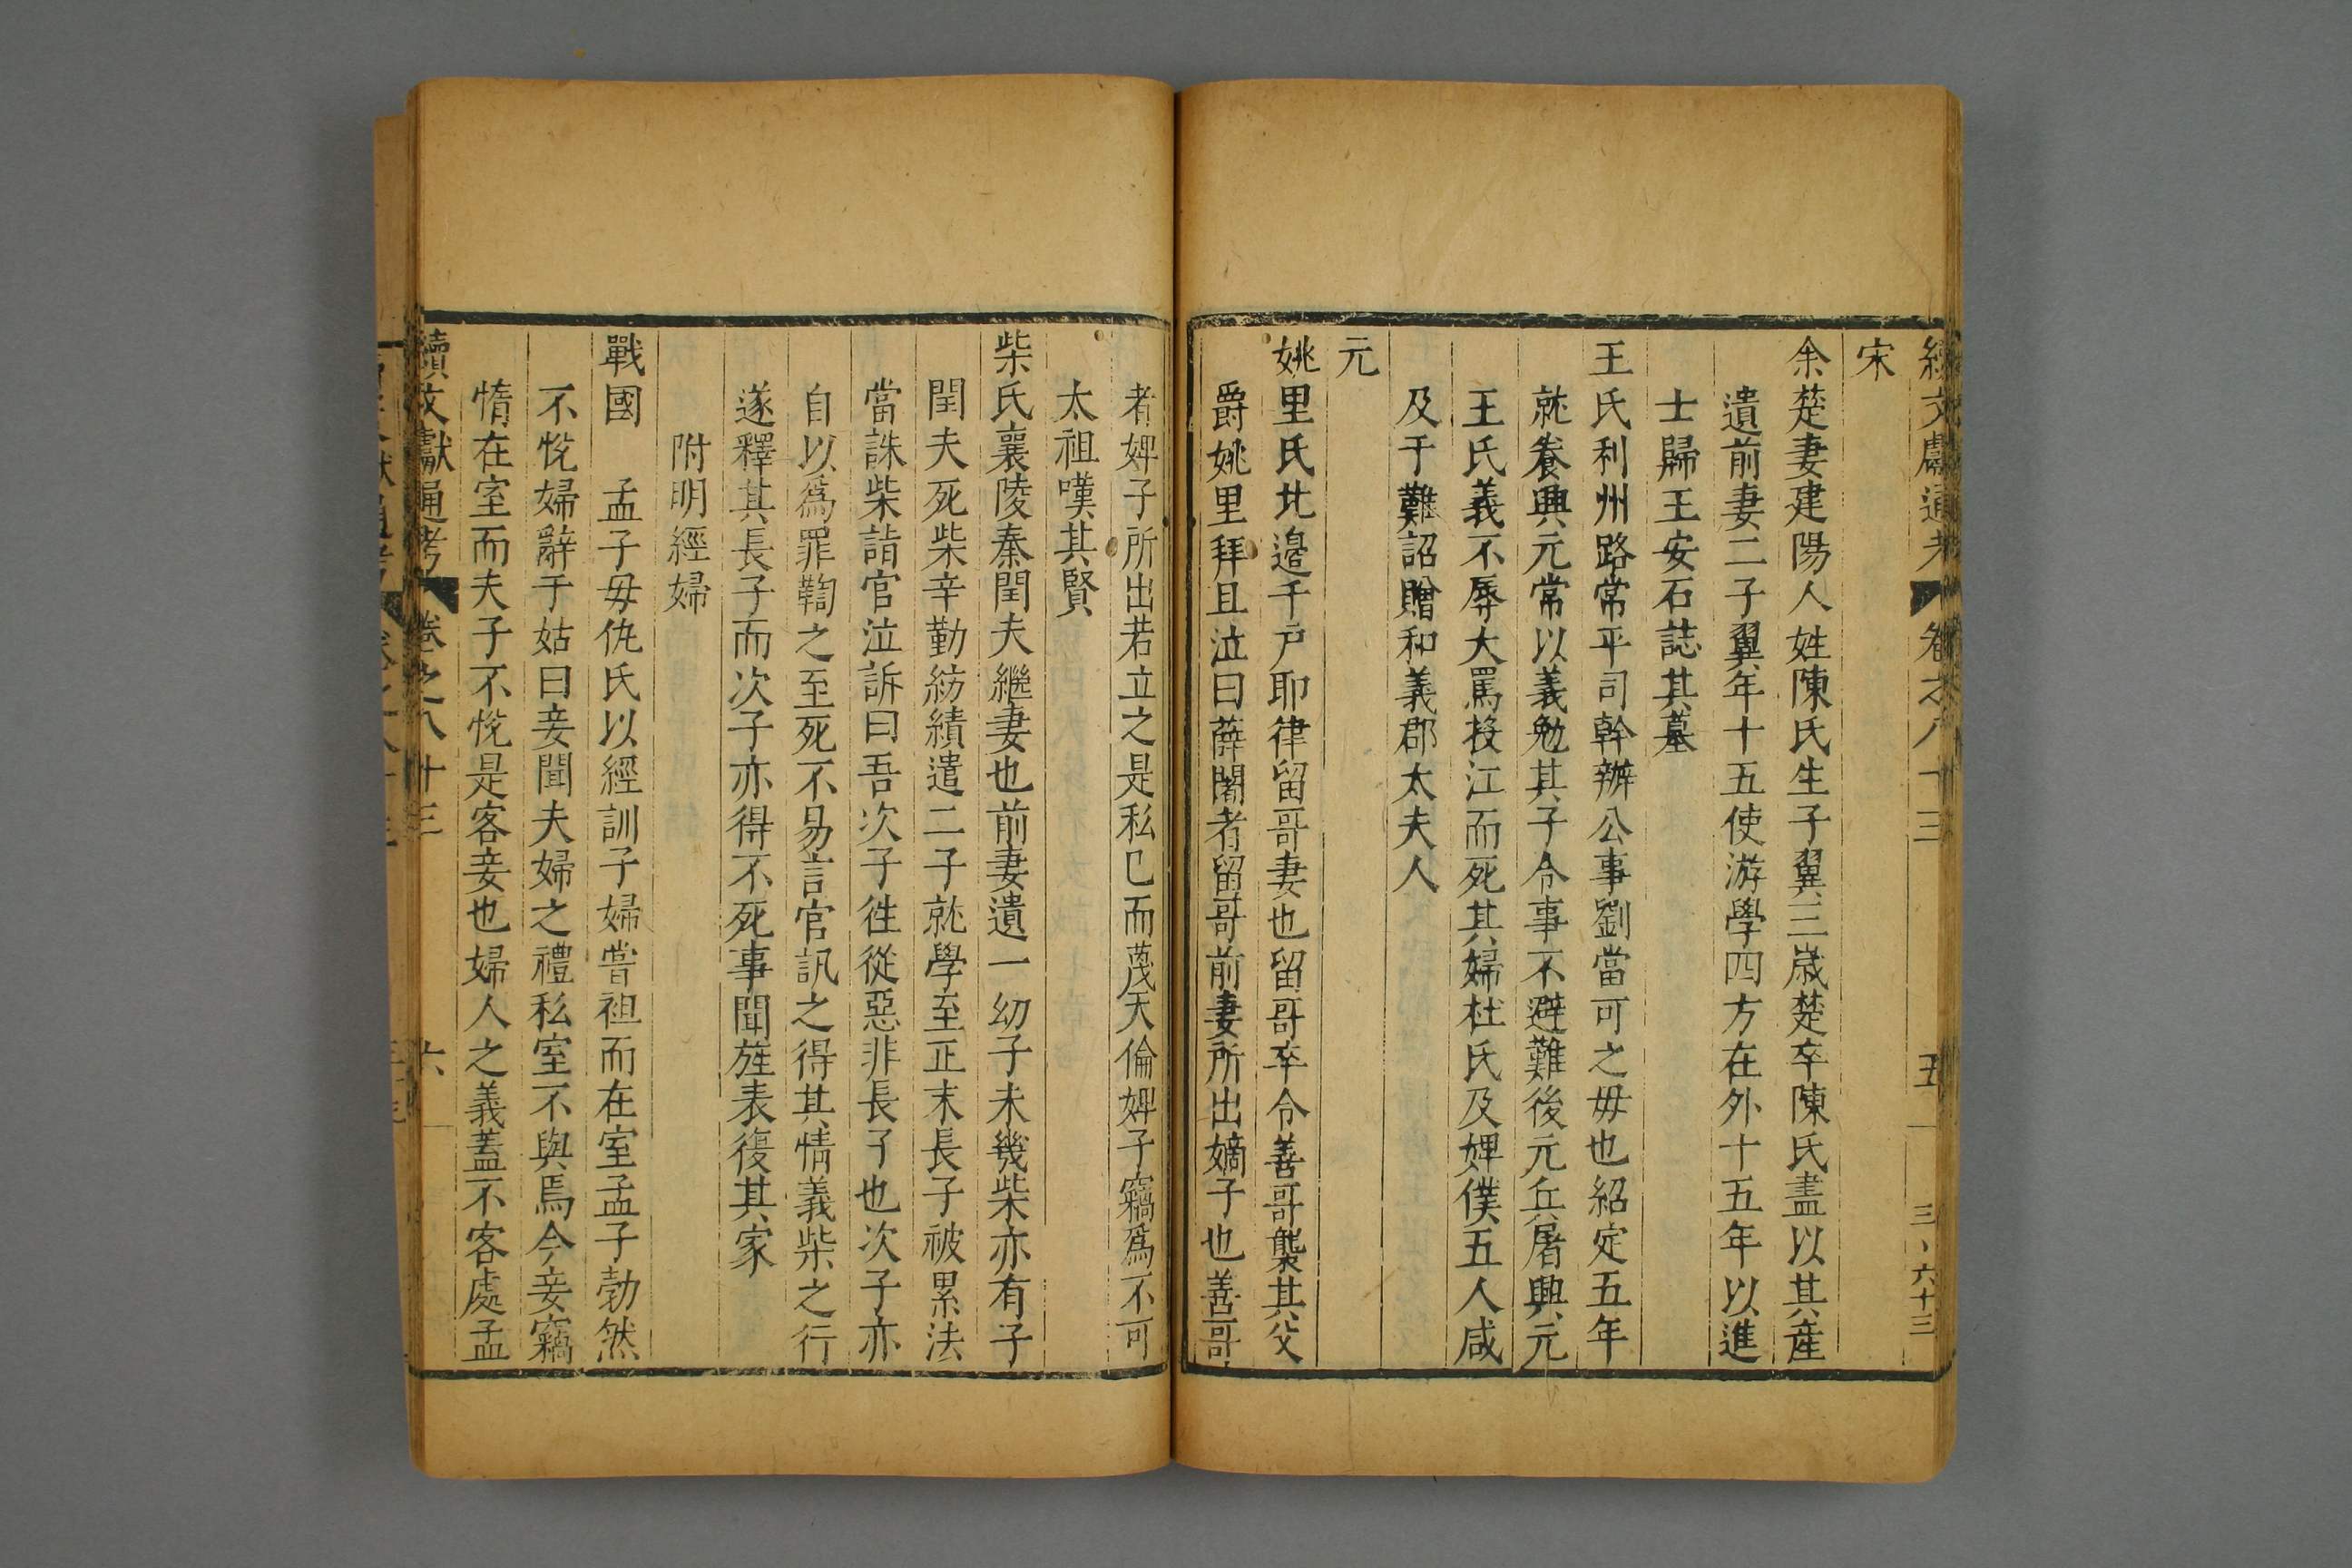 續文獻通考 卷之八十三 五 三、六十三
宋
余楚妻建陽人姓陳氏生子翼三歲楚卒陳氏盡以其產
遺前妻二子翼年十五使游學四方在外十五年以進
士歸王安石誌其墓
王氏利州路常平司幹辦公事劉當可之毋也紹定五年
就養興元常以義勉其子令事不避難後元兵屠興元
王氏義不辱大罵投江而死其婦杜氏及婢僕五人咸
及于難詔贈和義郡太夫人
元
姚里氏北邊千戶耶律留哥妻也留哥卒令善哥襲其父
爵姚里拜且泣曰薛闍者留哥前妻所出嫡子也善哥
者婢子所出若立之是私巳而蔑天倫婢子竊爲不可
太祖嘆其賢
柴氏襄陵秦閏夫繼妻也前妻遺一幼子未幾柴亦有子
閏夫死柴辛勤紡績遣二子就學至正末長子被累法
當誅柴詣官泣訴曰吾次子徃從惡非長子也次子亦
自以爲罪鞫之至死不易言官訊之得其情義柴之行
遂釋其長子而次子亦得不死事聞旌表復其家
附明經婦
戰國 孟子毋仉氏以經訓子婦嘗袒而在室孟子勃然
不悅婦辭于姑曰妾聞夫婦之禮私室不與焉今妾竊
惰在室而夫子不悅是客妾也婦人之義蓋不客處孟
續文獻通考 卷之八十三 六